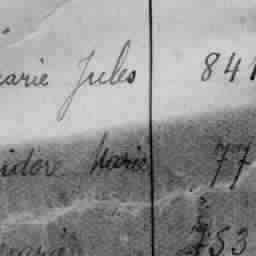 arie Jules 841
idore Marie 77
253